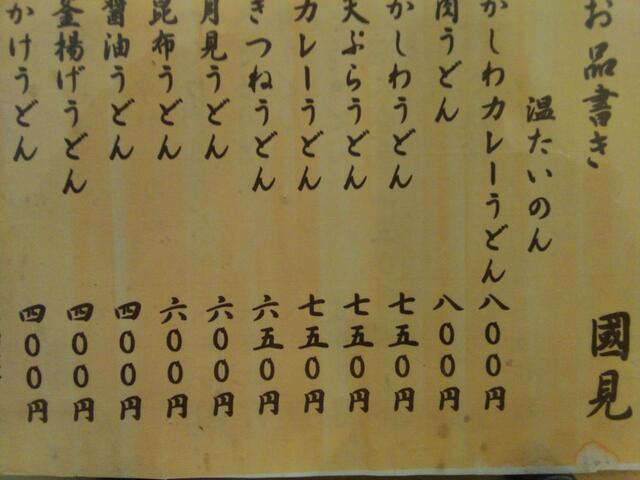 お品書き
國見
温たいのん
かしわカレーうどん 八00円
肉うどん 八00円
かしわうどん 七五0円
天ぷらうどん 七五0円
カレーうどん 七五0円
きつねうどん 六五0円
月見うどん 六00円
昆布うどん 六00円
醤油うどん 四00円
釜揚げうどん 四00円
かけうどん 四00円